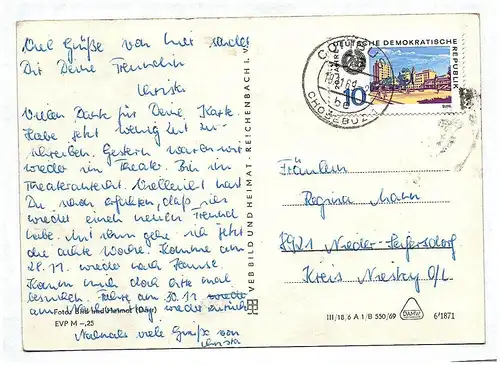 Viel Grüße von hier sendet
Dir Deine Freundin
Christa
Vielen Dank für Deine Karte.
Habe jetzt wenig Zeit zu
schreiben. Gestern waren wir
wieder im Theater. Bin im
Theateranrecht. Vielleicht hast
Du schon erfahren, daß ich
wieder einen neuen Freund
habe. Mit dem gehe ich jetzt
die achte Woche. Komme am
28.11. wieder nach Hause.
Kannst mich doch bitte mal
besuchen. Fahre am 30.11. wieder
am Nachmittag wieder zurück
Nochmals viele Grüße von
Christa
Foto: Bild und Heimat (Darr)
EVP M –,25
VEB BILD UND HEIMAT · REICHENBACH I. V.
COTTBUS
CHOŚEBUZ
DEUTSCHE DEMOKRATISCHE
REPUBLIK
10
Fräulein
Regina Mahn
8921 Nieder-Seifersdorf
Kreis Niesky O/L
III/18/6 A 1/B 550/69
DAMW
6/1871